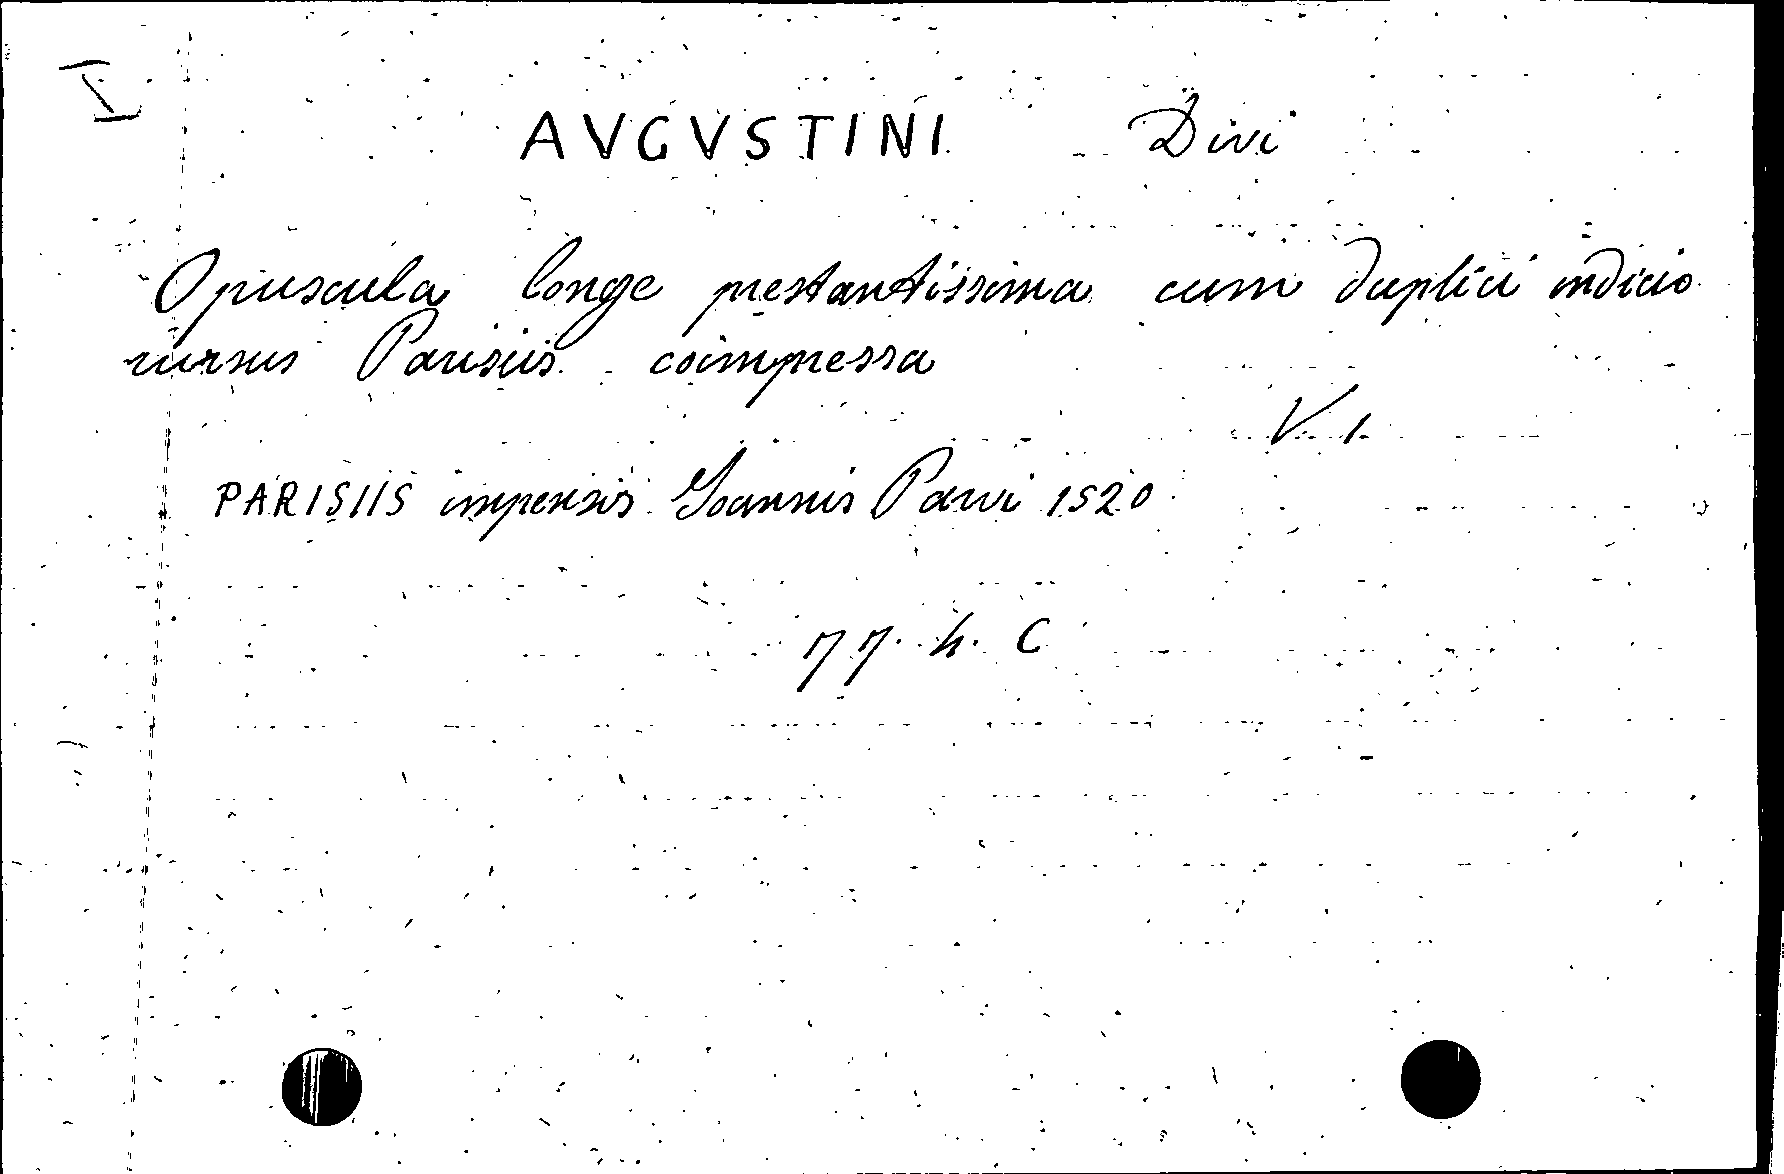 I
AVGVSTINI Divi
Opuscula longe prestantissima cum duplici indicio
rursus Parisiis coimpressa
V. 1.
PARISIIS impensis Ioannis Parvi 1520
77. h. C